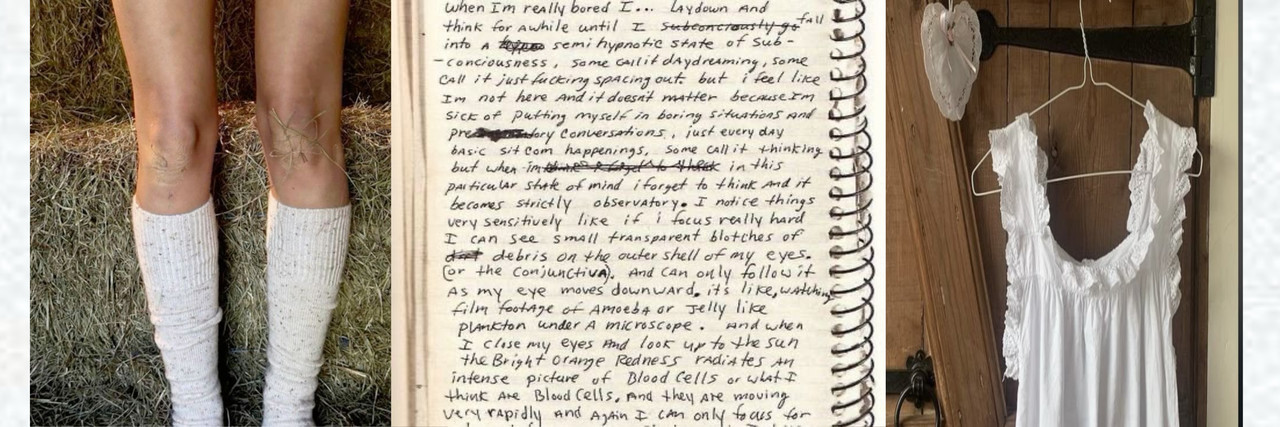 when Im really bored I... laydown And
think for awhile until I subconciously go fall
into A semi hypnotic state of Sub-
-conciousness, some call it daydreaming, some
call it just fucking spacing out. but i feel like
Im not here And it doesn't matter because I'm
sick of putting myself in boring situations And
conversations, just every day
basic sit com happenings, some call it thinking
but when im in this
particular state of mind i forget to think And it
becomes strictly observatory. I notice things
very sensitively like if i focus really hard
I can see small transparent blotches of
debris on the outer shell of my eyes.
(or the conjunctiva). And can only follow it
As my eye moves downward. it's like, watching
film footage of Amoeba or Jelly like
plankton under A microscope. And when
I close my eyes And look up to the sun
the Bright orange Redness radiates An
intense picture of Blood Cells or what I
think Are Blood Cells. And they are moving
very rapidly And Again I can only focus for